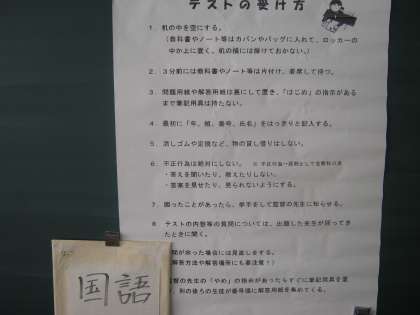 テストの受け方
1. 机の中を空にする。
(教科書やノート等はカバンやバッグに入れて、ロッカーの
中か上に置く。机の横には掛けておかない。)
2. 3分前には教科書やノート等は片付け、着席して待つ。
3. 問題用紙や解答用紙は裏にして置き、「はじめ」の指示がある
まで筆記用具は持たない。
4. 最初に「年、組、番号、氏名」をはっきりと記入する。
5. 消しゴムや定規など、物の貸し借りはしない。
6. 不正行為は絶対にしない。
・答えを聞いたり、教えたりしない。
・答案を見せたり、見られないようにする。
7. 困ったことがあったら、挙手をして監督の先生に知らせる。
8. テストの内容等の質問については、出題した先生が回ってき
たときに聞く。
間が余った場合には見直しをする。
解答方法や解答場所にも要注意!)
督の先生の「やめ」の指示があったらすぐに筆記用具を
き、列の後ろの生徒が番号順に解答用紙を集めてくる。
国語